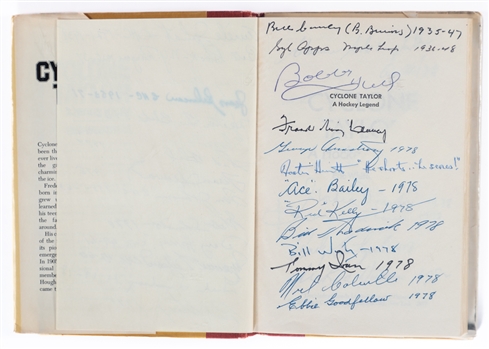 CY
Cyclone
been the
ever live
the g
charm
the ice.
Fred
born i
grew
learned
his tee
the fa
around
His
of the
its po
emerge
In 190
sional
membe
Hough
came
Bill Cowley (B. Bruins) 1935-47
Syl Apps Maple Leaf 1936-48
Bobby Hull
CYCLONE TAYLOR
A Hockey Legend
Frank King Clancy
George Armstrong 1978
Foster Hewitt "He shoots..he scores!"
"Ace" Bailey - 1978
"Red" Kelly - 1978
Bill Thoderick 1978
Bill - 1978
Tommy Ivan 1978
Neil Colville 1978
Ebbie Goodfellow 1978